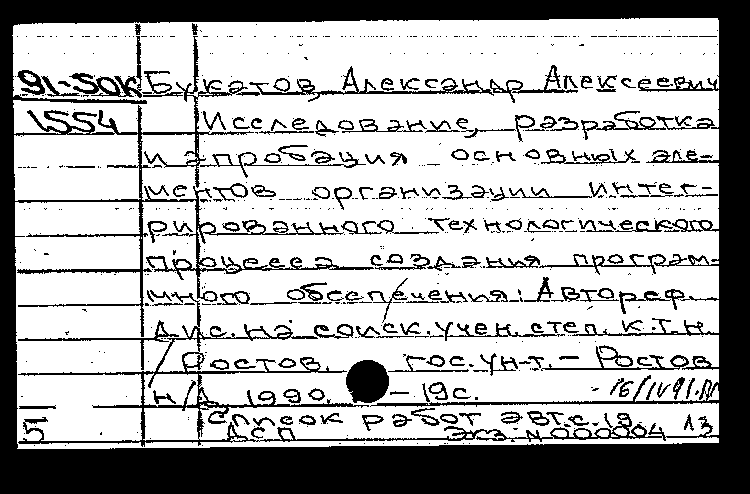 91-50К Букатов, Александр Алексеевич
1554 Исследование, разработка
и апробация основных эле-
ментов организации интег-
рированного технологического
процесса создания програм-
много обеспечения: Автореф.
дис. на соиск. учен. степ. к.т.н.
/ Ростов. гос. ун-т. - Ростов
н/Д, 1990. - 19с. - 16/IV 91.
Список работ авт. с. 19
5 ДСП Экз. N 000004 13